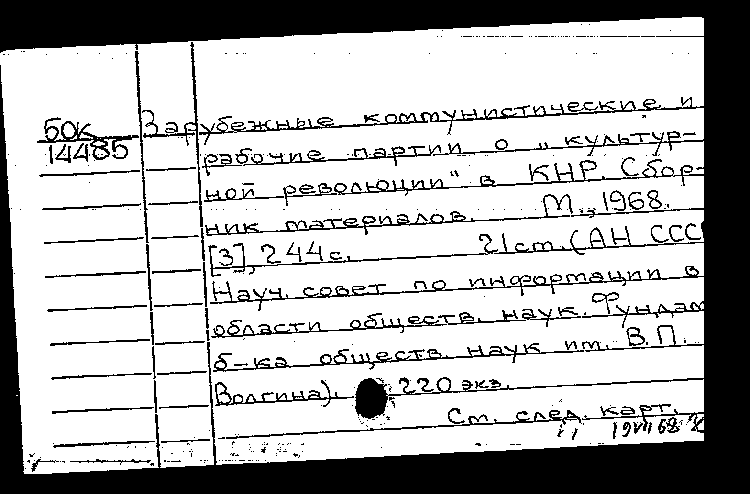 50к Зарубежные коммунистические и
14485 рабочие партии о „культур-
ной революции" в КНР. Сбор-
ник материалов. М., 1968.
[3], 244 с. 21 см. (АН СССР
Науч. совет по информации в
области обществ. наук. Фундам
б-ка обществ. наук им. В.П.
Волгина). 220 экз.
См. след. карт.